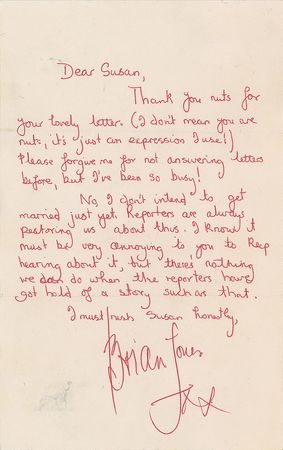 Dear Susan,
Thank you nuts for
your lovely letter. (I don't mean you are
nuts, it's just an expression I use!)
Please forgive me for not answering letters
before, but I've been so busy!
No, I don't intend to get
married just yet. Reporters are always
pestoring us about this. I know it
must be very annoying to you to keep
hearing about it, but there's nothing
we can do when the reporters have
got hold of a story such as that.
I must rush Susan honestly,
Brian Jones
xx